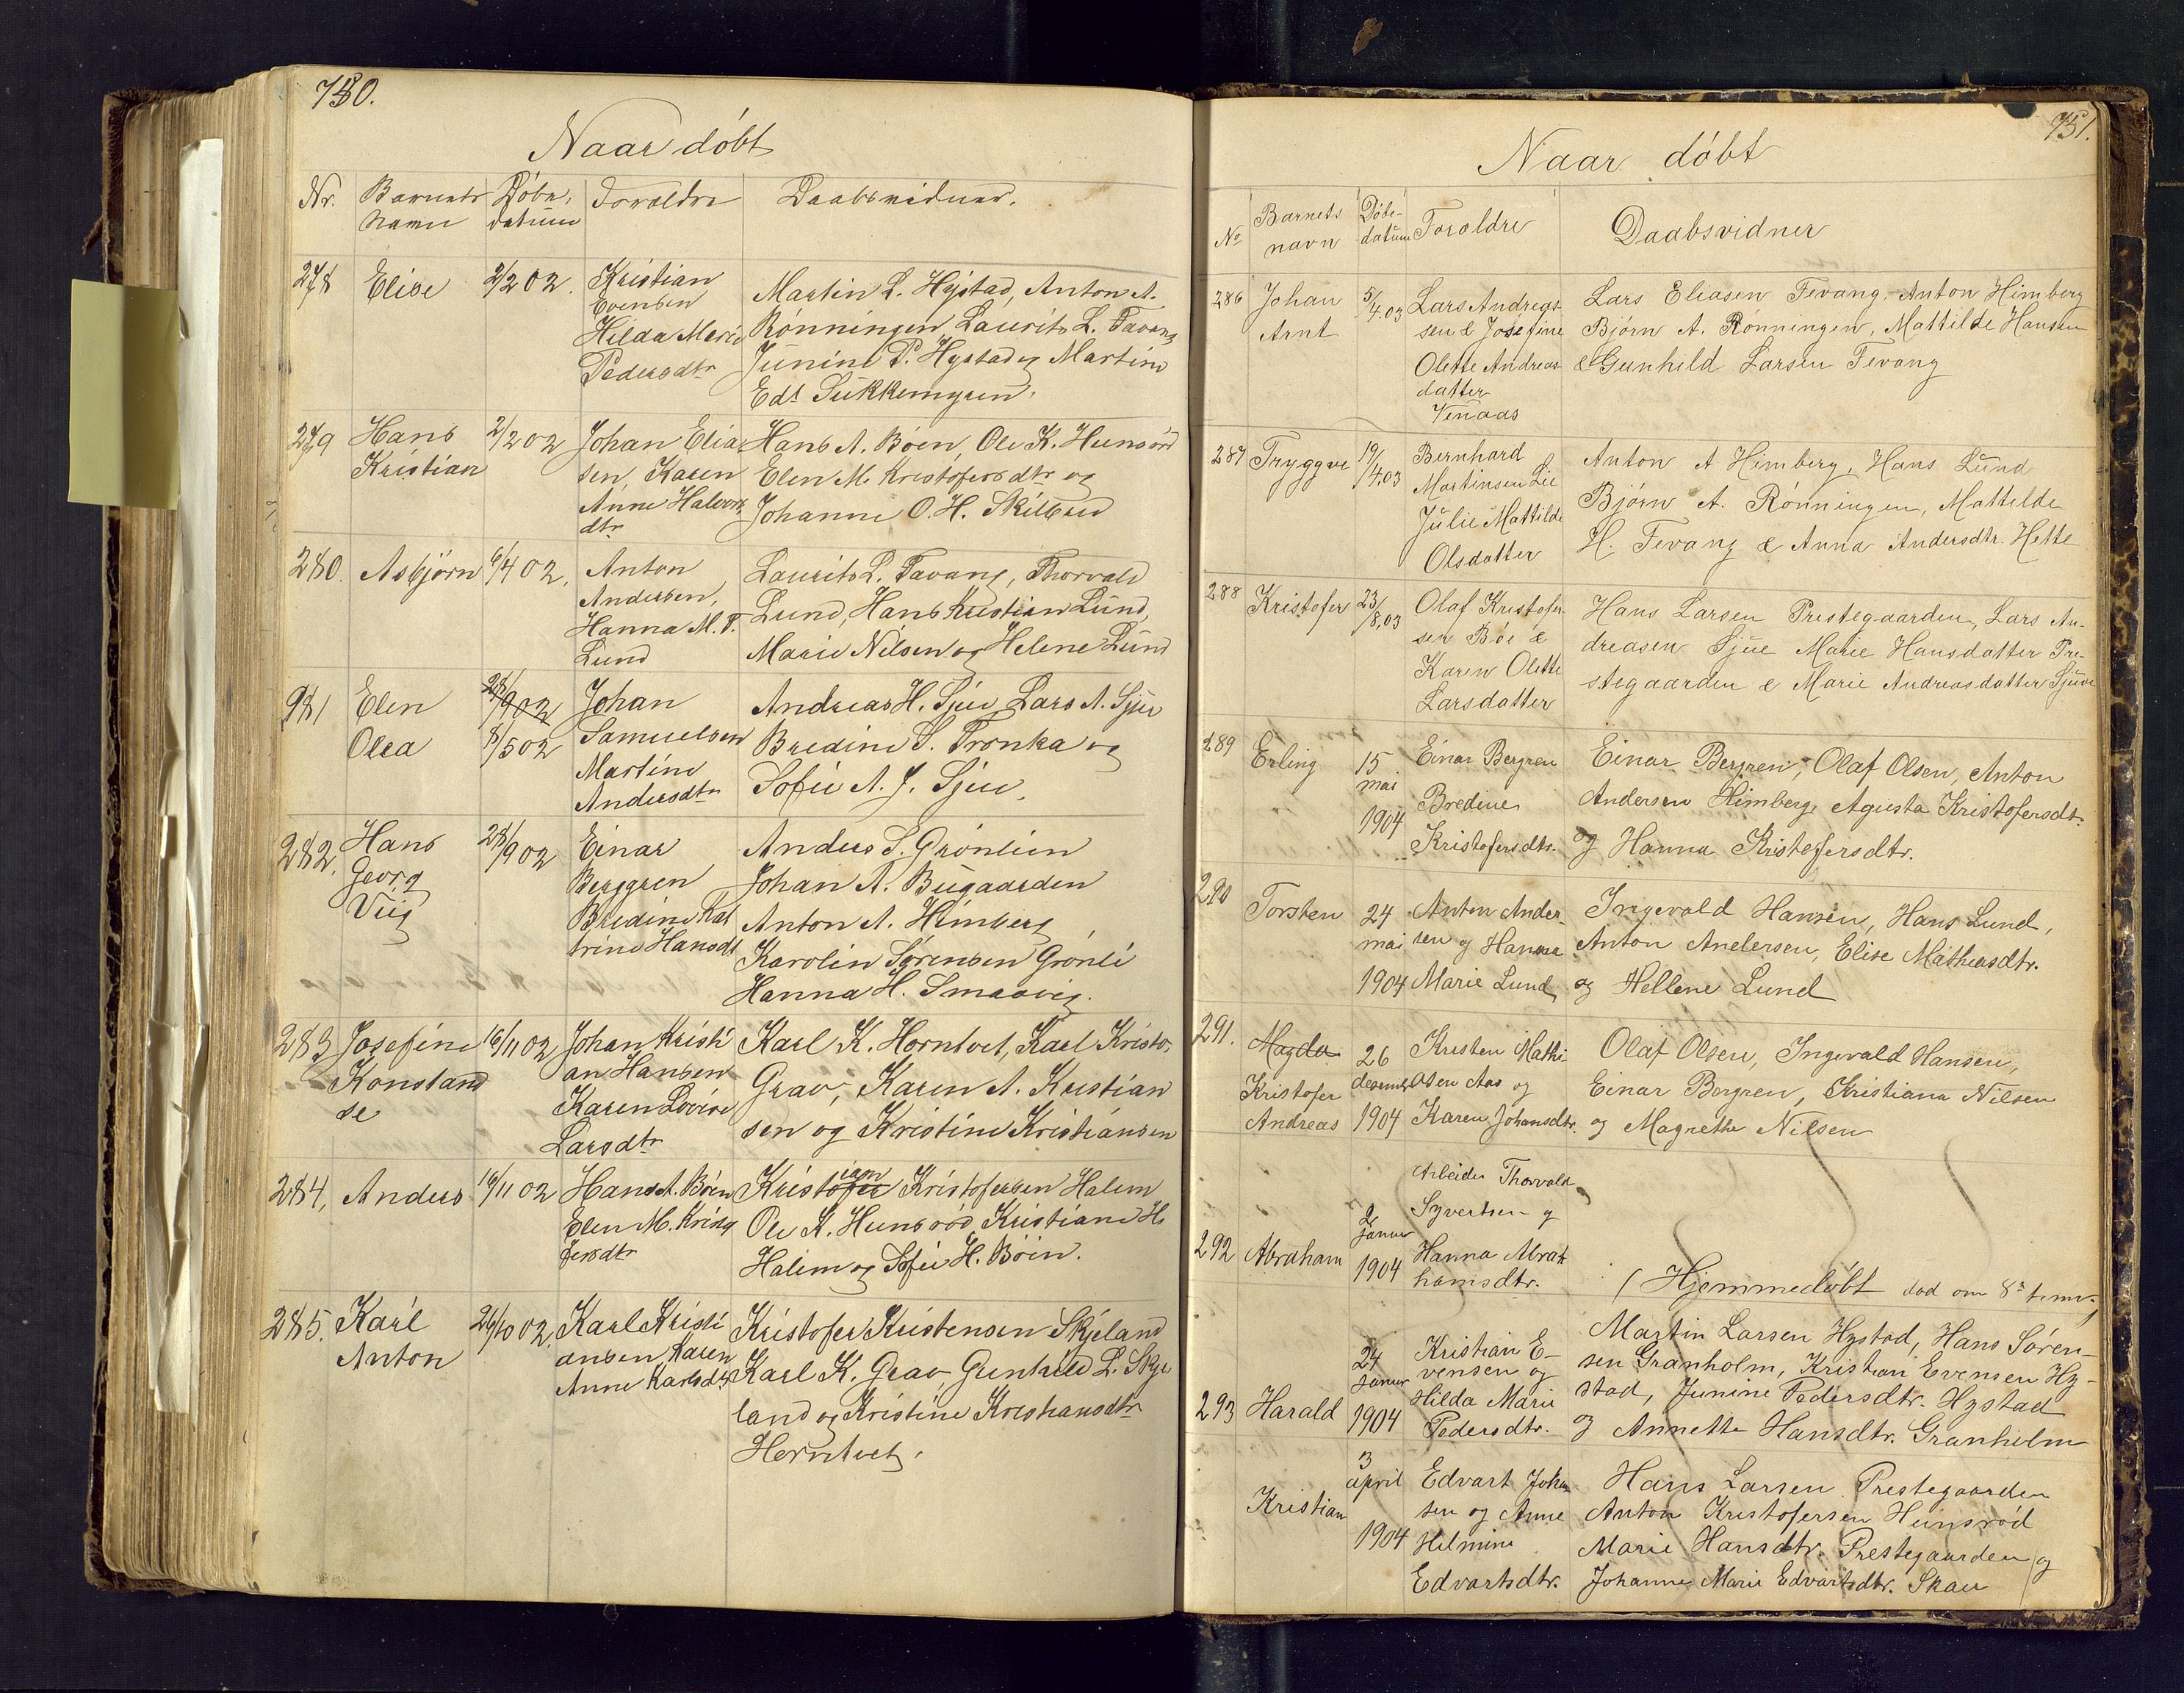 750.
Naar döbt
Nr. Barnets navn Döbs, datum Foreldre Daabsvidner.
278 Elise 2/2 02. Kristian
Evensen
Hilda Marie
Pedersdtr
Martin L. Hystad, Anton A.
Rönningen, Laurits L. Tavang
Junine P. Hystad og Martine
Edt Sukkemyren.
279 Hans
Kristian
2/2 02 Johan Elia
sen, Karen
Anne Halvors
dtr
Hans A. Böen, Ole K. Hunsröd
Elen M. Kristofersdtr og
Johanne O. H. Skilbred
280. Asbjörn 6/4 02. Anton
Andersen,
Hanna M. T.
Lund
Laurits L. Tavang, Thorvald
Lund, Hans Kristian Lund,
Marie Nilsen og Helene Lund
281 Elen
Olea
28/9 02
8/5 02
Johan
Samuelsen
Martine
Andersdtr
Andreas H. Sjue, Lars A. Sjue
Bredine S. Tronka og
Sofie A. J. Sjue.
282. Hans
Georg
Viig
28/9 02 Einar
Berggren
Bredine Kat
trine Hansdt
Anders S. Grönlien
Johan A. Bugaarden
Anton A. Himberg
Karolin Sörensen Grönli
Hanna H. Smaavig.
283 Josefine
Konstand
se
16/11 02 Johan Kristi
an Hansen
Karen Lovise
Larsdtr
Karl K. Horntvet, Karl Kristo.
Grav, Karen A. Kristian
sen og Kristine Kristiansen
284, Anders 16/11 02 Hans A. Böen
Elen M. Kristo
fersdtr
ian
Kristofer Kristofersen Halem
Ole K. Hunsröd, Kristiane H.
Halem og Sofie H. Böen.
285. Karl
Anton
26/10 02. Karl Kristi
ansen Karen
Anne Karlsdt
Kristofer Kristensen Skjeland
Karl K. Grav, Gunhild L. Skje
land og Kristine Kristiansdtr
Horntvet.
751.
Naar döbt
No Barnets navn Döbe-datum Foroldre Daabsvidner
286 Johan
Arnt
5/4.03 Lars Andreas
sen & Josefine
Olette Andreas
datter
Venaas
Lars Eliasen Tevang. Anton Himberg
Björn A. Rönningen, Mattilde Hansen
& Gunhild Larsen Tevang
287 Tryggve 19/4.03 Bernhard
Martinsen Lie
Julie Mattilde
Olsdatter
Anton A Himberg, Hans Lund
Björn A. Rönningen, Mattilde
H. Tevang & Anna Andersdtr. Hette
288 Kristofer 23/8,03 Olaf Kristofer
sen Böe &
Karen Olette
Larsdatter
Hans Larsen Prestegaarden, Lars An-
dreasen Sjue Marie Hansdatter Pre-
stegaarden & Marie Andreasdatter Sjuve
289 Erling 15
mai
1904
Einar Bergren
Bredine
Kristofersdtr.
Einar Bergren, Olaf Olsen, Anton
Andersen Himberg Agusta Kristofersdt.
og Hanna Kristofersdtr.
290 Torsten 24
mai
1904
Anton Ander
sen og Hanna
Marie Lund
Ingevald Hansen, Hans Lund,
Anton Andersen, Elise Mathiasdtr.
og Hellene Lund
291. Magda
Kristofer
Andreas
26
desember
1904
Kristen Mathi-
asen Aas og
Karen Johansdtr.
Olaf Olsen, Ingevald Hansen,
Einar Bergren, Kristiana Nilsen
og Magrethe Nilsen
292 Abraham 2
Januar
1904
Arbeider Thorvald
Syvertsen og
Hanna Abrah
hamsdtr.
(Hjemmedöbt död om 8 timer)
293 Harald 24
Januar
1904
Kristian E-
vensen og
Hilda Marie
Pedersdtr.
Martin Larsen Hystad, Hans Sören-
sen Granholm, Kristian Evensen Hy-
stad, Junine Pedersdtr. Hystad
og Annette Hansdtr. Granholm
Kristian 3
april
1904
Edvart Johan
sen og Anne
Helmine
Edvartsdtr.
Hans Larsen Prestegaarden
Anton Kristofersen Hunsröd
Marie Hansdtr. Prestegaarden og
Johanne Marie Edvartsdtr. Skau